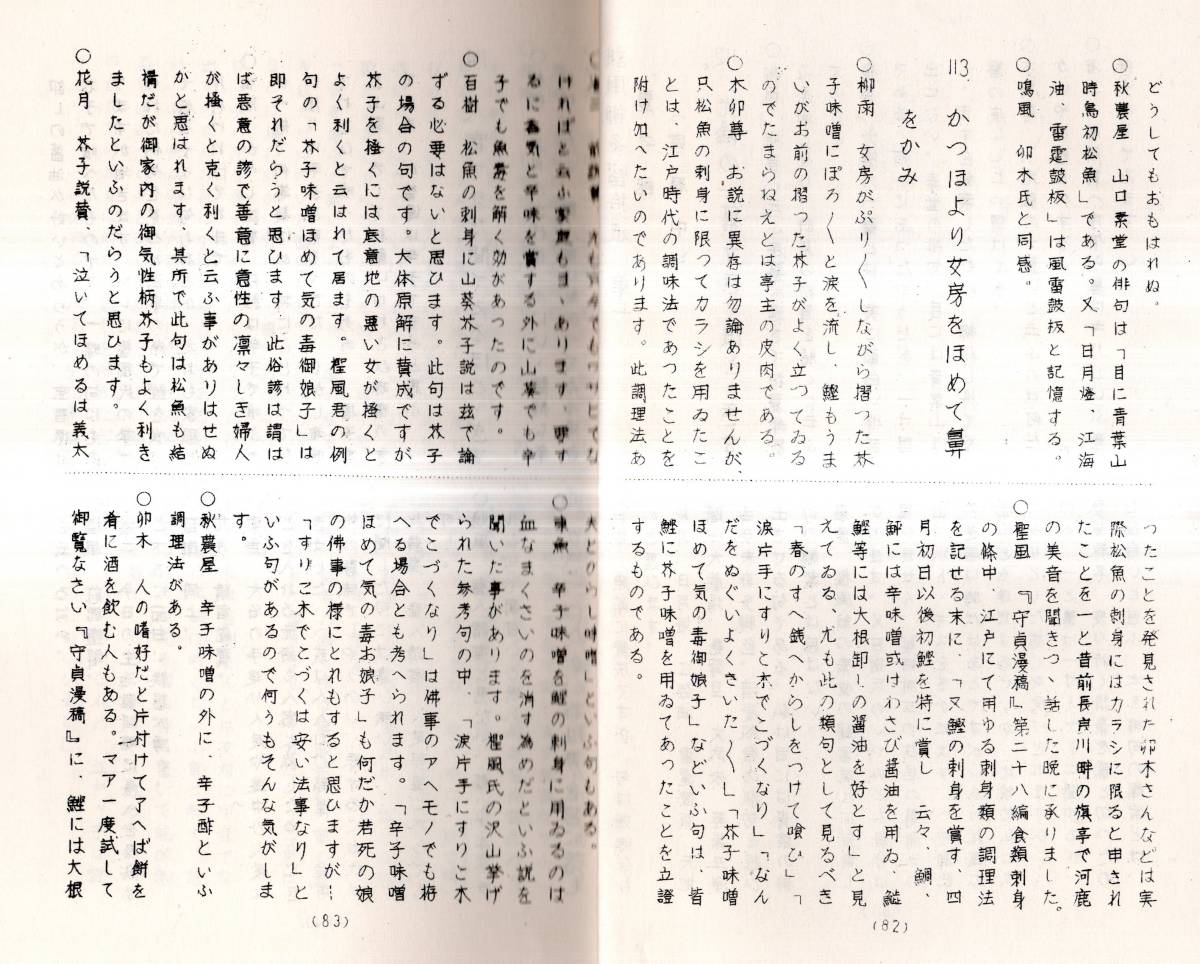 どうしてもおもはれぬ。
○秋農屋　山口素堂の俳句は「目に青葉山
時鳥初松魚」である。又「日月燈、江海
油、雷霆鼓板」は風雷鼓板と記憶する。
○鳴風　卯木氏と同感。
113.かつほより女房をほめて鼻
をかみ
○柳雨　女房がぶり〱しながら摺つた芥
子味噌にぽろ〱と涙を流し、鰹もうま
いがお前の摺つた芥子がよく立つてゐる
のでたまらねえとは亭主の皮肉である。
○木卯尊　お説に異存は勿論ありませんが、
只松魚の刺身に限ってカラシを用ゐたこ
とは、江戸時代の調味法であつたことを
附け加へたいのであります。此調理法あ
つたことを発見された卯木さんなどは実
際松魚の刺身にはカラシに限ると申され
たことを一と昔前長良川畔の旗亭で河鹿
の美音を聞きつゝ話した晩に承りました。
○樫風　『守貞漫稿』第二十八編食類刺身
の條中、江戸にて用ゆる刺身類の調理法
を記せる末に、「又鰹の刺身を賞す、四
月初日以後初鰹を特に賞し　云々、鯛、
鮃には辛味噌或はわさび醤油を用ゐ、鮪
鰹等には大根卸しの醤油を好とす」と見
えてゐる、尤も此の類句として見るべき
「春のすへ銭へからしをつけて喰ひ」「
涙片手にすりこ木でこづくなり」「なん
だをぬぐいよくきいた〱」「芥子味噌
ほめて気の毒御娘子」などいふ句は、皆
鰹に芥子味噌を用ゐてあつたことを立證
するものである。
ければと云ふ家庭もまゝあります、要す
るに香気と辛味を賞する外に山葵でも辛
子でも魚毒を解く効があつたのです。
○百樹　松魚の刺身に山葵芥子説は玆で論
ずる必要はないと思ひます。此句は芥子
の場合の句です。大体原解に賛成ですが
芥子を掻くには底意地の悪い女が掻くと
よく利くと云はれて居ます。樫風君の例
句の「芥子味噌ほめて気の毒御娘子」は
即それだらうと思ひます。此俗諺は謂は
ば悪意の諺で善意に意性の凛々しき婦人
が掻くと克く利くと云ふ事がありはせぬ
かと思はれます、其所で此句は松魚も結
構だが御家内の御気性柄芥子もよく利き
ましたといふのだらうと思ひます。
○花月、芥子説賛、「泣いてほめるは義太
夫とからし味噌」といふ句もある。
○東魚　辛子味噌を鰹の刺身に用ゐるのは
血なまくさいのを消す為めだといふ説を
聞いた事があります。樫風氏の沢山挙げ
られた参考句の中、「涙片手にすりこ木
でこづくなり」は佛事のアヘモノでも拵
へる場合とも考へられます。「辛子味噌
ほめて気の毒お娘子」も何だか若死の娘
の佛事の様にとれもすると思ひますが…
「すりこ木でこづくは安い法事なり」と
いふ句があるので何うもそんな気がしま
す。
○秋農屋　辛子味噌の外に、辛子酢といふ
調理法がある。
○卯木　人の嗜好だと片付けて了へば餅を
肴に酒を飲む人もある。マア一度試して
御覧なさい『守貞漫稿』に、鰹には大根
(82)
(83)